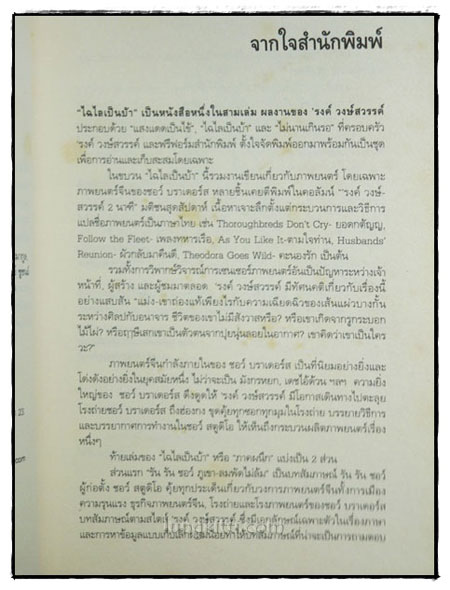 จากใจสำนักพิมพ์
"ไฉไลเป็นบ้า" เป็นหนังสือหนึ่งในสามเล่ม ผลงานของ 'รงค์ วงษ์สวรรค์
ประกอบด้วย "แสงแดดเป็นไข้", "ไฉไลเป็นบ้า" และ "ไม่นานเกินรอ" ที่ครอบครัว
'รงค์ วงษ์สวรรค์ และฟรีฟอร์มสำนักพิมพ์ ตั้งใจจัดพิมพ์ออกมาพร้อมกันเป็นชุด
เพื่อการอ่านและเก็บสะสมโดยเฉพาะ
ในขบวน "ไฉไลเป็นบ้า" นี้รวมงานเขียนเกี่ยวกับภาพยนตร์ โดยเฉพาะ
ภาพยนตร์จีนของชอว์ บราเดอร์ส หลายชิ้นเคยตีพิมพ์ในคอลัมน์ "'รงค์ วงษ์-
สวรรค์ 2 นาฬี" มติชนสุดสัปดาห์ เนื้อหาเจาะลึกตั้งแต่กระบวนการและวิธีการ
แปลชื่อภาพยนตร์เป็นภาษาไทย เช่น Thoroughbreds Don't Cry- ยอดกตัญญู,
Follow the Fleet- เพลงทหารเรือ, As You Like It-ตามใจท่าน, Husbands'
Reunion- ผัวกลับมาคืนดี, Theodora Goes Wild- คะนองรัก เป็นต้น
รวมทั้งการวิพากษ์วิจารณ์การเซนเซอร์ภาพยนตร์อันเป็นปัญหาระหว่างเจ้า
หน้าที่, ผู้สร้าง และผู้ชมมาตลอด 'รงค์ วงษ์สวรรค์ มีทัศนคติเกี่ยวกับเรื่องนี้
อย่างแสบสัน "แม่ง-เขาถ่องแท้เพียงไรกับความเฉียดฉิวของเส้นแผ่วบางกั้น
ระหว่างศิลปกับอนาจาร ชีวิตของเขาไม่มีสังวาสหรือ? หรือเขาเกิดจากรูกระบอก
ไม้ไผ่? หรือฤาษีเสกเขาเป็นตัวตนจากปุยนุ่นลอยในอากาศ? เขาคิดว่าเขาเป็นใคร
วะ?"
ภาพยนตร์จีนกำลังภายในของ ชอว์ บราเดอร์ส เป็นที่นิยมอย่างยิ่งและ
โด่งดังอย่างยิ่งในยุคสมัยหนึ่ง ไม่ว่าจะเป็น มังกรหยก, เดชไอ้ด้วน ฯลฯ ความยิ่ง
ใหญ่ของ ชอว์ บราเดอร์ส ดึงดูดให้ 'รงค์ วงษ์สวรรค์ มีโอกาสเดินทางไปตะลุย
โรงถ่ายชอว์ บราเดอร์ส ถึงฮ่องกง ขุดคุ้ยทุกซอกทุกมุมในโรงถ่าย บรรยายวิธีการ
และบรรยากาศการทำงานในชอว์ สตูดิโอ ให้เห็นถึงกระบวนผลิตภาพยนตร์เรื่อง
หนึ่งๆ
ท้ายเล่มของ "ไฉไลเป็นบ้า" หรือ "ภาคผนึก" แบ่งเป็น 2 ส่วน
ส่วนแรก "รัน รัน ชอว์ ภูเขา-ลมพัดไม่ล้ม" เป็นบทสัมภาษณ์ รัน รัน ชอว์
ผู้ก่อตั้ง ชอว์ สตูดิโอ คุ้ยทุกประเด็นเกี่ยวกับวงการภาพยนตร์จีน ตั้งการเมือง
ความรุนแรง ธุรกิจภาพยนตร์จีน, โรงถ่ายและโรงภาพยนตร์ของชอว์ บราเดอร์ส
บทสัมภาษณ์ตามสไตล์ 'รงค์ วงษ์สวรรค์ ซึ่งมีเอกลักษณ์เฉพาะตัวในเรื่องภาษา
และการหาข้อมูลแบบเก็บเล็กผสมน้อยทำให้บทสัมภาษณ์ที่น่าจะเป็นการถามตอบ
23